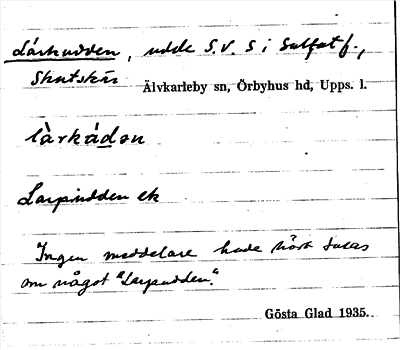 Lärkudden, udde S.V. S i Sulfatf.,
Skutskär Älvkarleby sn, Örbyhus hd, Upps. l.
làrkúdǝn
Larpudden ek
Ingen meddelare hade hört talas
om något "Larpudden".
Gösta Glad 1935.